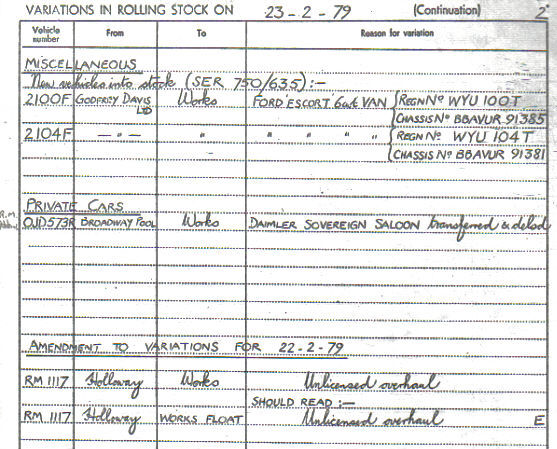 VARIATIONS IN ROLLING STOCK ON 23-2-79 (Continuation) 2
Vehicle number From To Reason for variation
MISCELLANEOUS
New vehicles into stock (SER 750/635):-
2100F GODFREY DAVIS LTD Works FORD ESCORT 6cwt VAN { REGN Nº WYU 100T
CHASSIS Nº BBAVUR 91385
2104F — " — " " " " " { REGN Nº WYU 104T
CHASSIS Nº BBAVUR 91381
PRIVATE CARS
R.M.
OJD573R BROADWAY POOL Works DAIMLER SOVEREIGN SALOON transferred & delsd
AMENDMENT TO VARIATIONS FOR 22-2-79
RM 1117 Holloway Works Unlicensed overhaul
SHOULD READ :—
RM 1117 Holloway WORKS FLOAT Unlicensed overhaul E